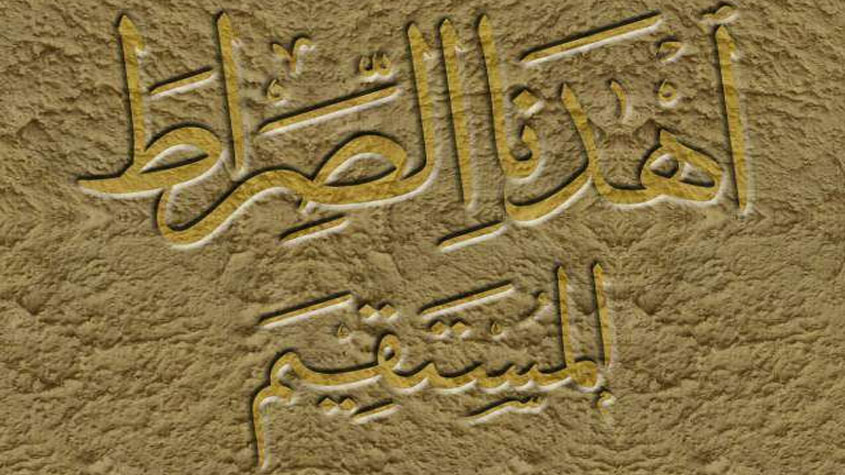 ٱهْدِنَا الصِّرَاطَ
الْمُسْتَقِيمَ